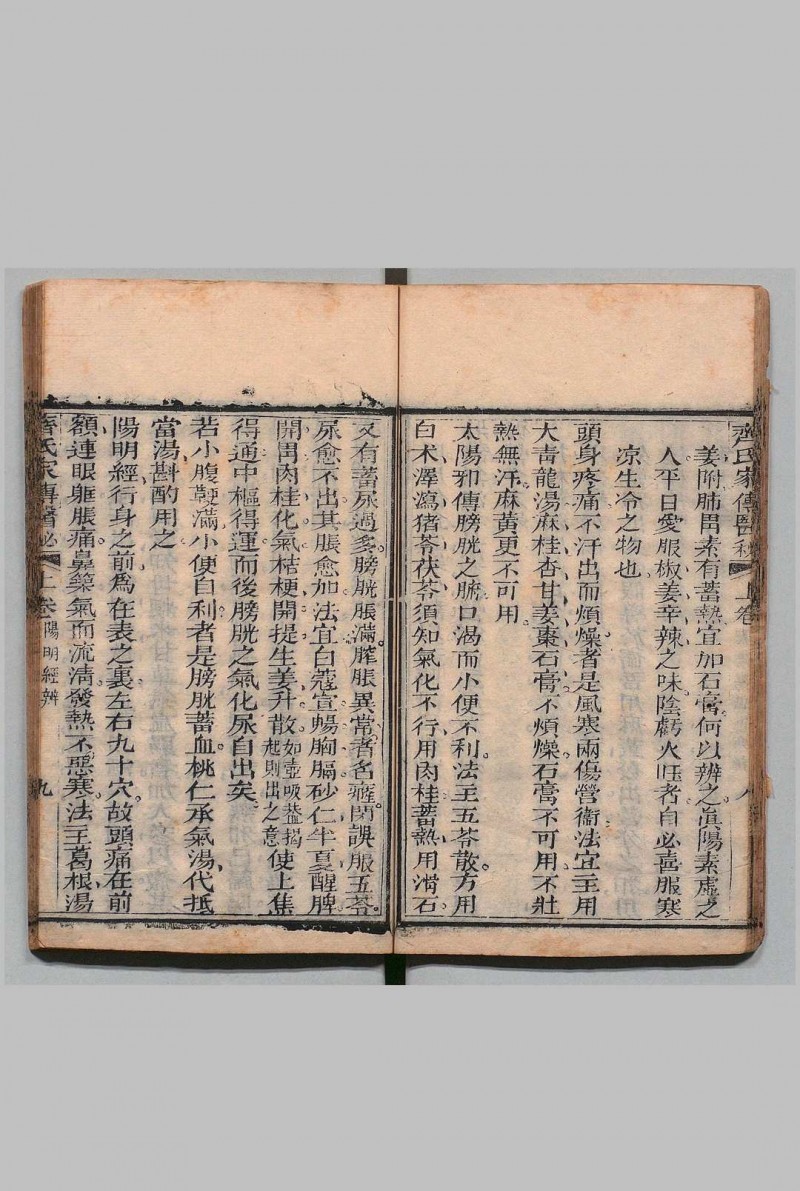 齊氏家傳醫秘 上卷 八
姜附肺胃素有蓄熱宜加石膏何以辨之眞陽素虛之
人平日愛服椒姜辛辣之味陰虧火旺者自必喜服寒
凉生冷之物也
頭身疼痛不汗出而煩燥者是風寒兩傷營衞法宜主用
大靑龍湯麻桂杏甘姜棗石膏不煩燥石膏不可用不壯
熱無汗麻黃更不可用
太陽邪傳膀胱之腑口渴而小便不利法主五苓散方用
白术澤瀉猪苓茯苓須知氣化不行用肉桂蓄熱用滑石
又有蓄尿過多膀胱脹滿脬脹異常者名癃閉誤服五苓
尿愈不出其脹愈加法宜白蔻宣暢胸膈砂仁半夏醒脾
開胃肉桂化氣桔梗開提生姜升散如壺吸蓋揭起則出之意使上焦
得通中樞得運而後膀胱之氣化尿自出矣
若小腹鞕滿小便自利者是膀胱蓄血桃仁承氣湯代抵
當湯斟酌用之
陽明經行身之前爲在表之裏左右九十穴故頭痛在前
額連眼眶脹痛鼻築氣而流淸發熱不惡寒法主葛根湯
齊氏家傳醫秘 上卷 陽明經辨 九